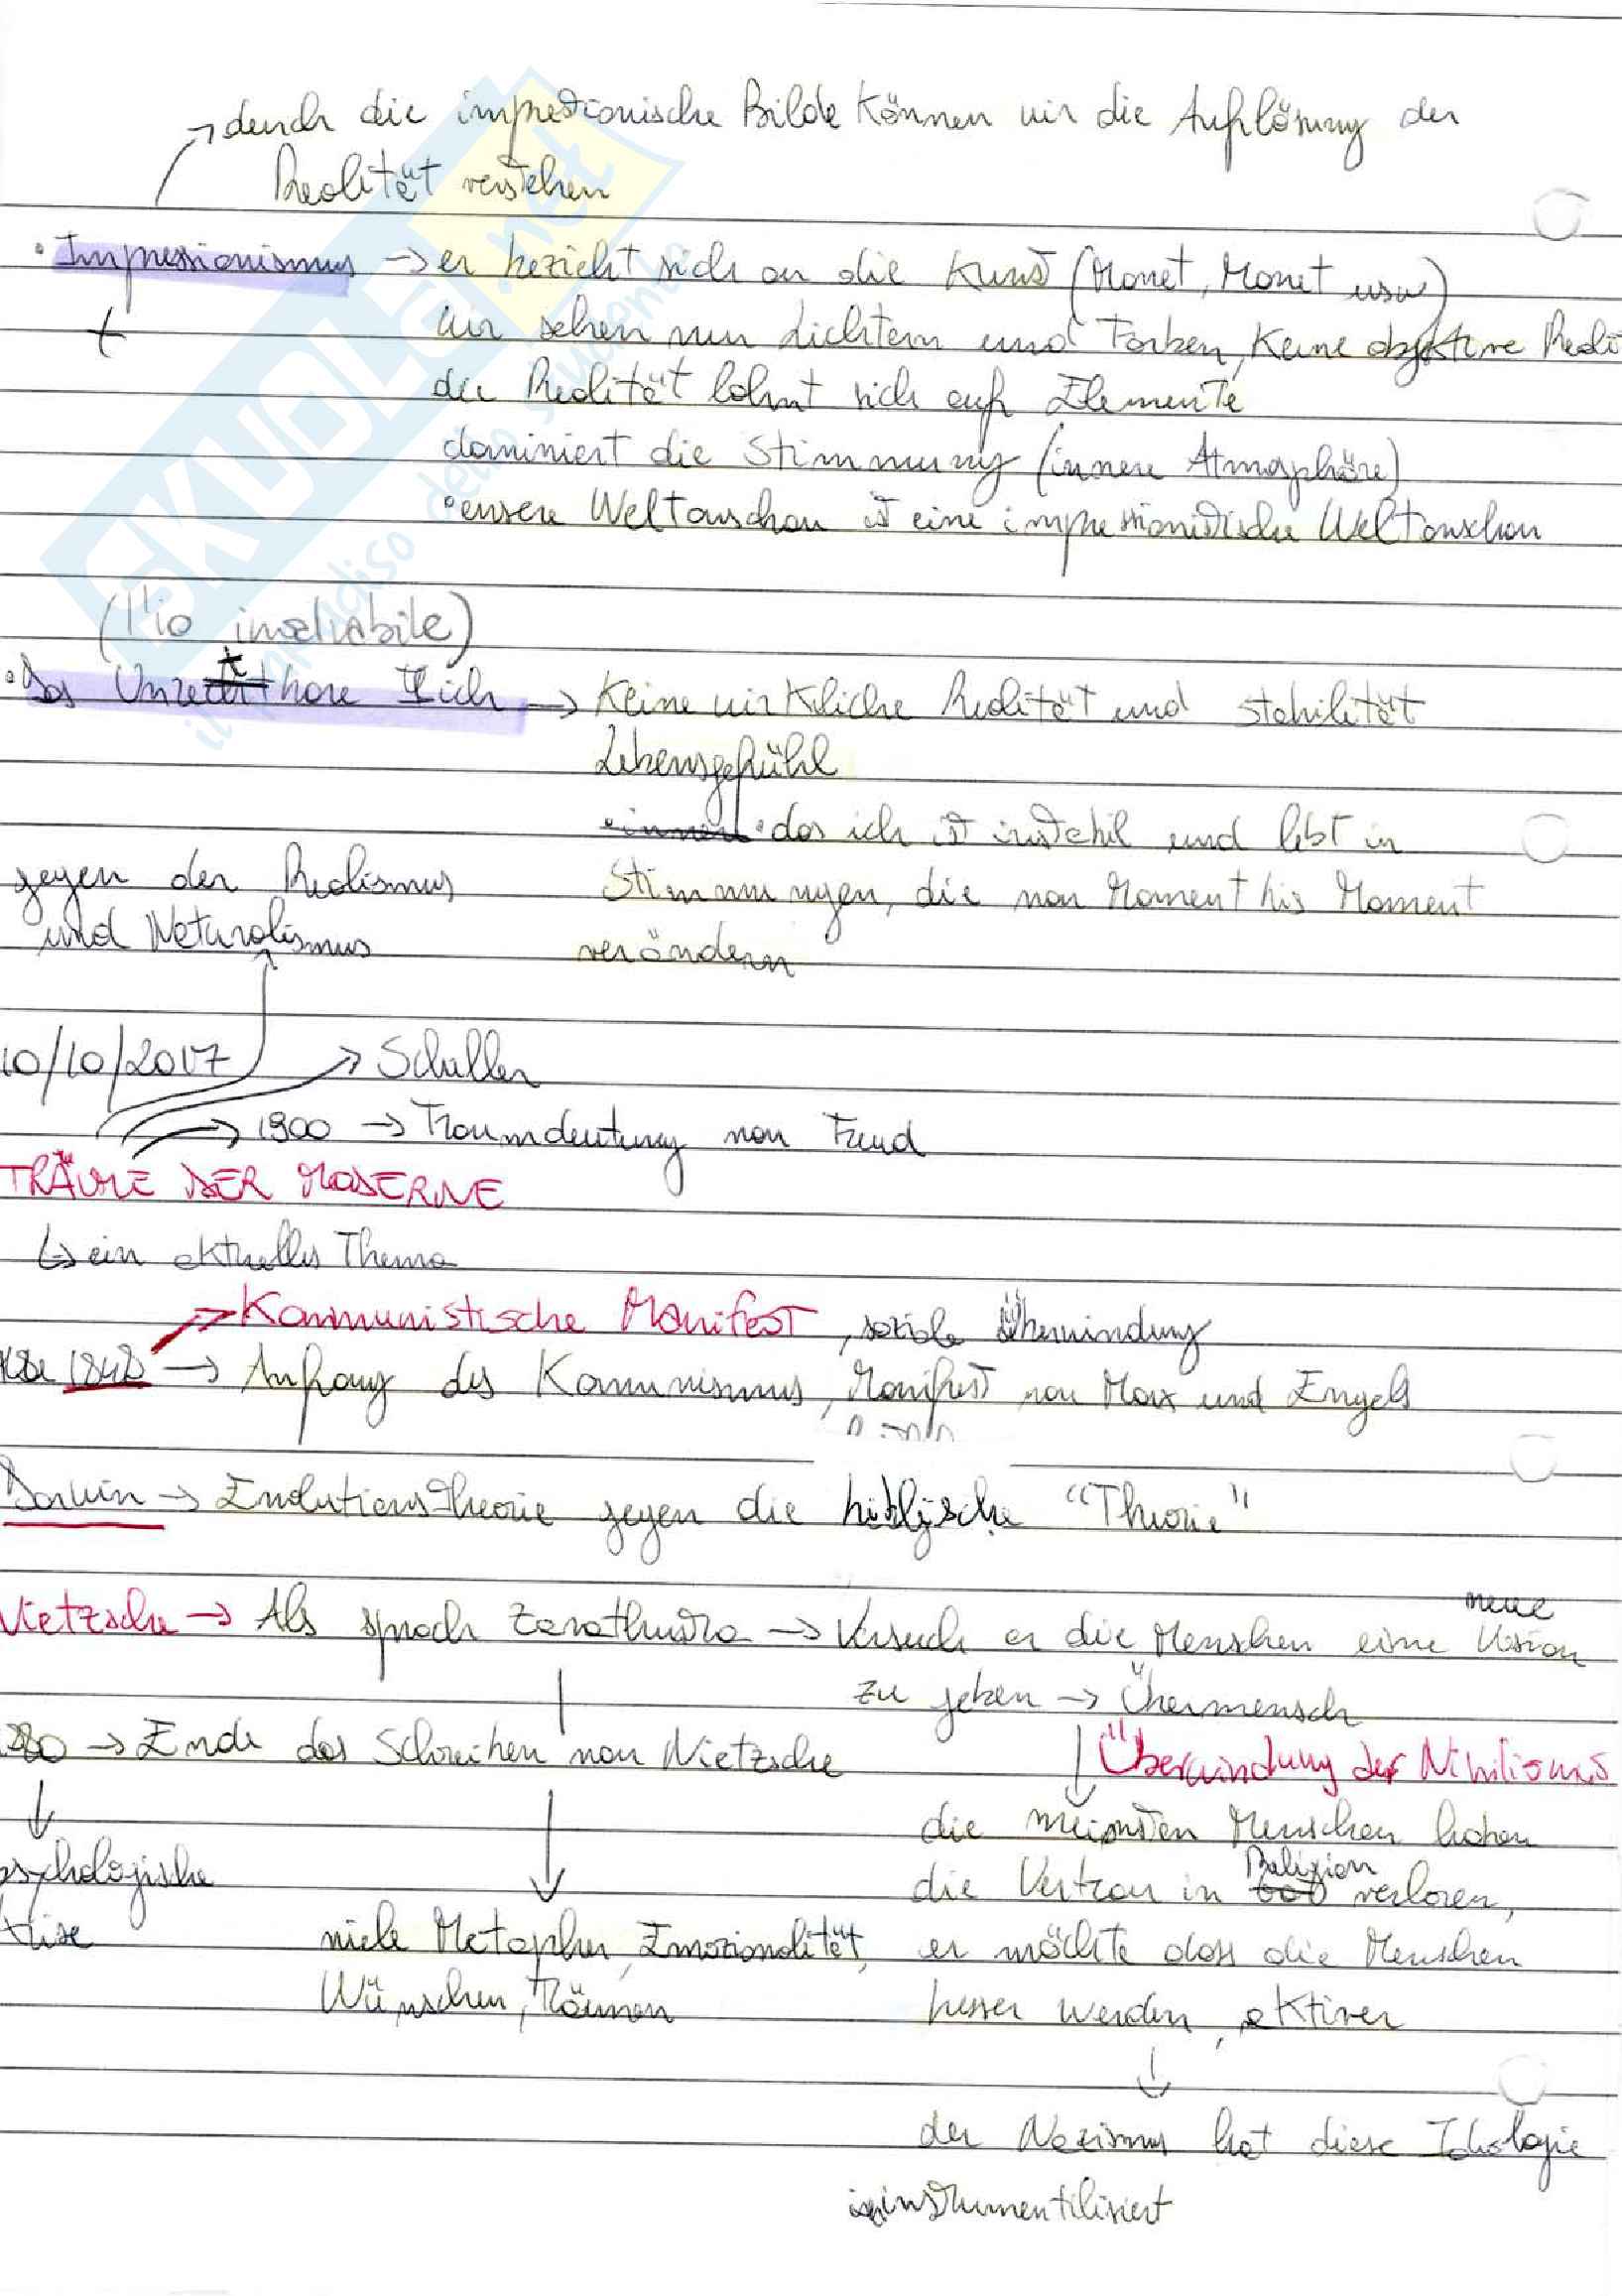 durch die impressionische Bilde können wir die Auflösung der
Realität verstehen
• Impressionismus → er bezieht sich an die Kunst (Monet, Manet usw)
wir sehen nur Lichtern und Farben, keine objektive Reali
die Realität löhnt sich auf Elemente
dominiert die Stimmung (innere Atmosphäre)
• unsere Weltanschau ist eine impressionistische Weltanschau
(l'io insalvabile)
• Das Unrettbare Ich → Keine wirkliche Realität und Stabilität
Lebensgefühl
• das ich ist instabil und lebt in
Stimmungen, die von Moment bis Moment
verändern
gegen der Realismus
und Naturalismus
10/10/2017 → Schuller
→ 1900 → Traumdeutung von Freud
TRÄUME DER MODERNE
↳ ein aktuelles Thema
→ Kommunistische Manifest, soziale Überwindung
1848 → Anfang des Kommunismus, Manifest von Marx und Engels
Darwin → Evolutionstheorie gegen die biblische "Theorie"
Nietzsche → Als sprach Zarathustra → Versuch an die Menschen eine neue Vision
zu geben → Übermensch
→ Ende des Schreiben von Nietzsche
Überwindung der Nihilismus
die meinsten Menschen haben
psychologische
die Vertrau in Religion verloren,
krise
viele Metapher, Emozionalität,
er möchte dass die Menschen
Wünschen, Träumen
besser werden, aktiver
der Nazismus hat diese Ideologie
instrumentilisiert
SKUOLA.net
il paradiso dello studente